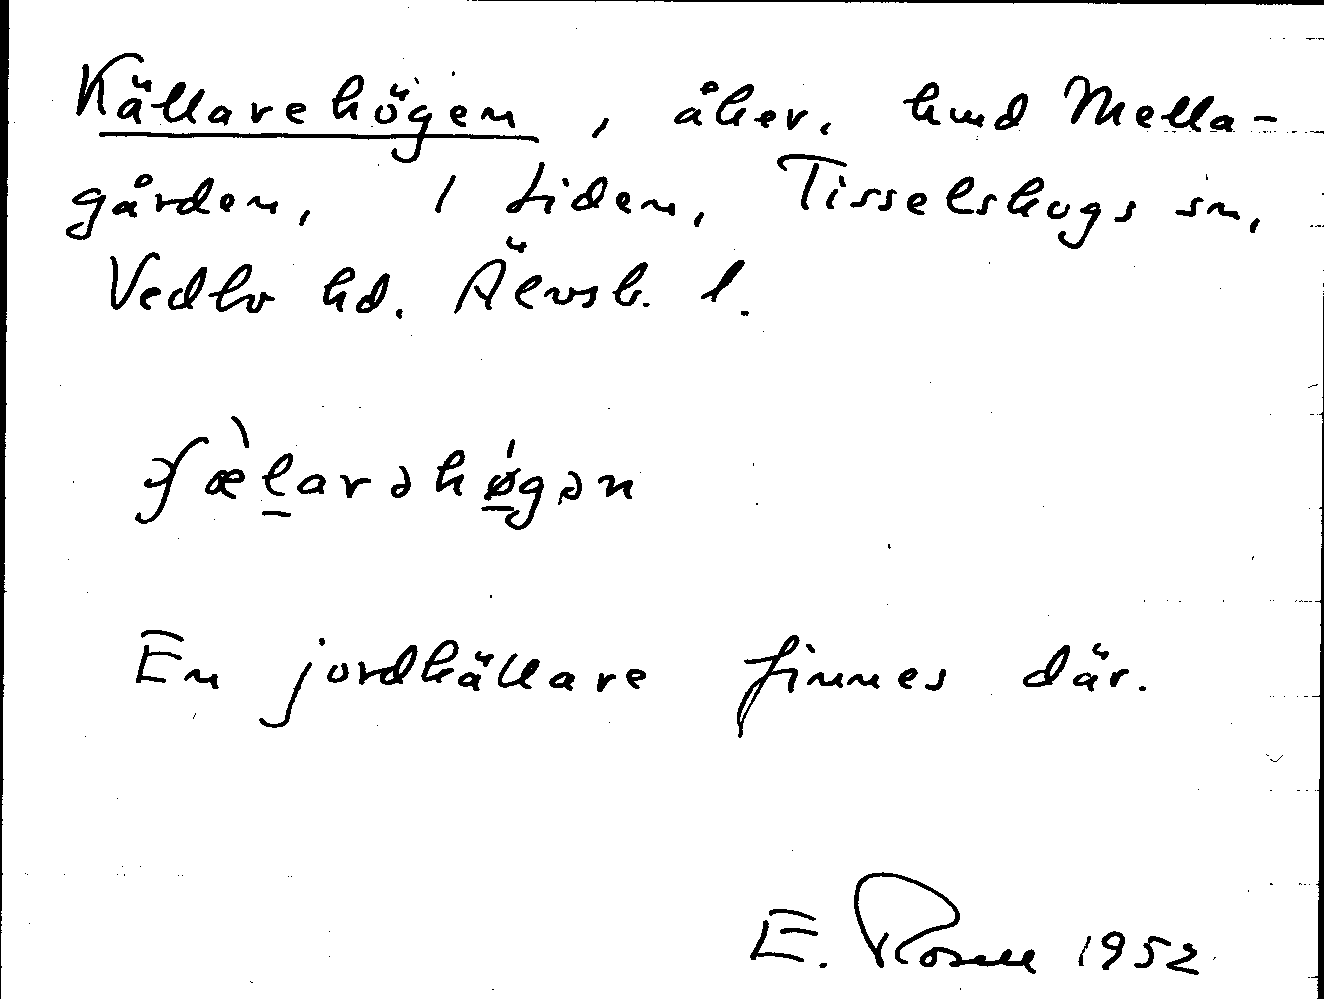 Källarehögen, åker. hmd Mella-
gården, 1 Liden, Tisselskogs sn,
Vedbo hd. Älvsb. l.
ʃæ̀larəhǿgən
En jordkällare finnes där.
E. Rosell 1952